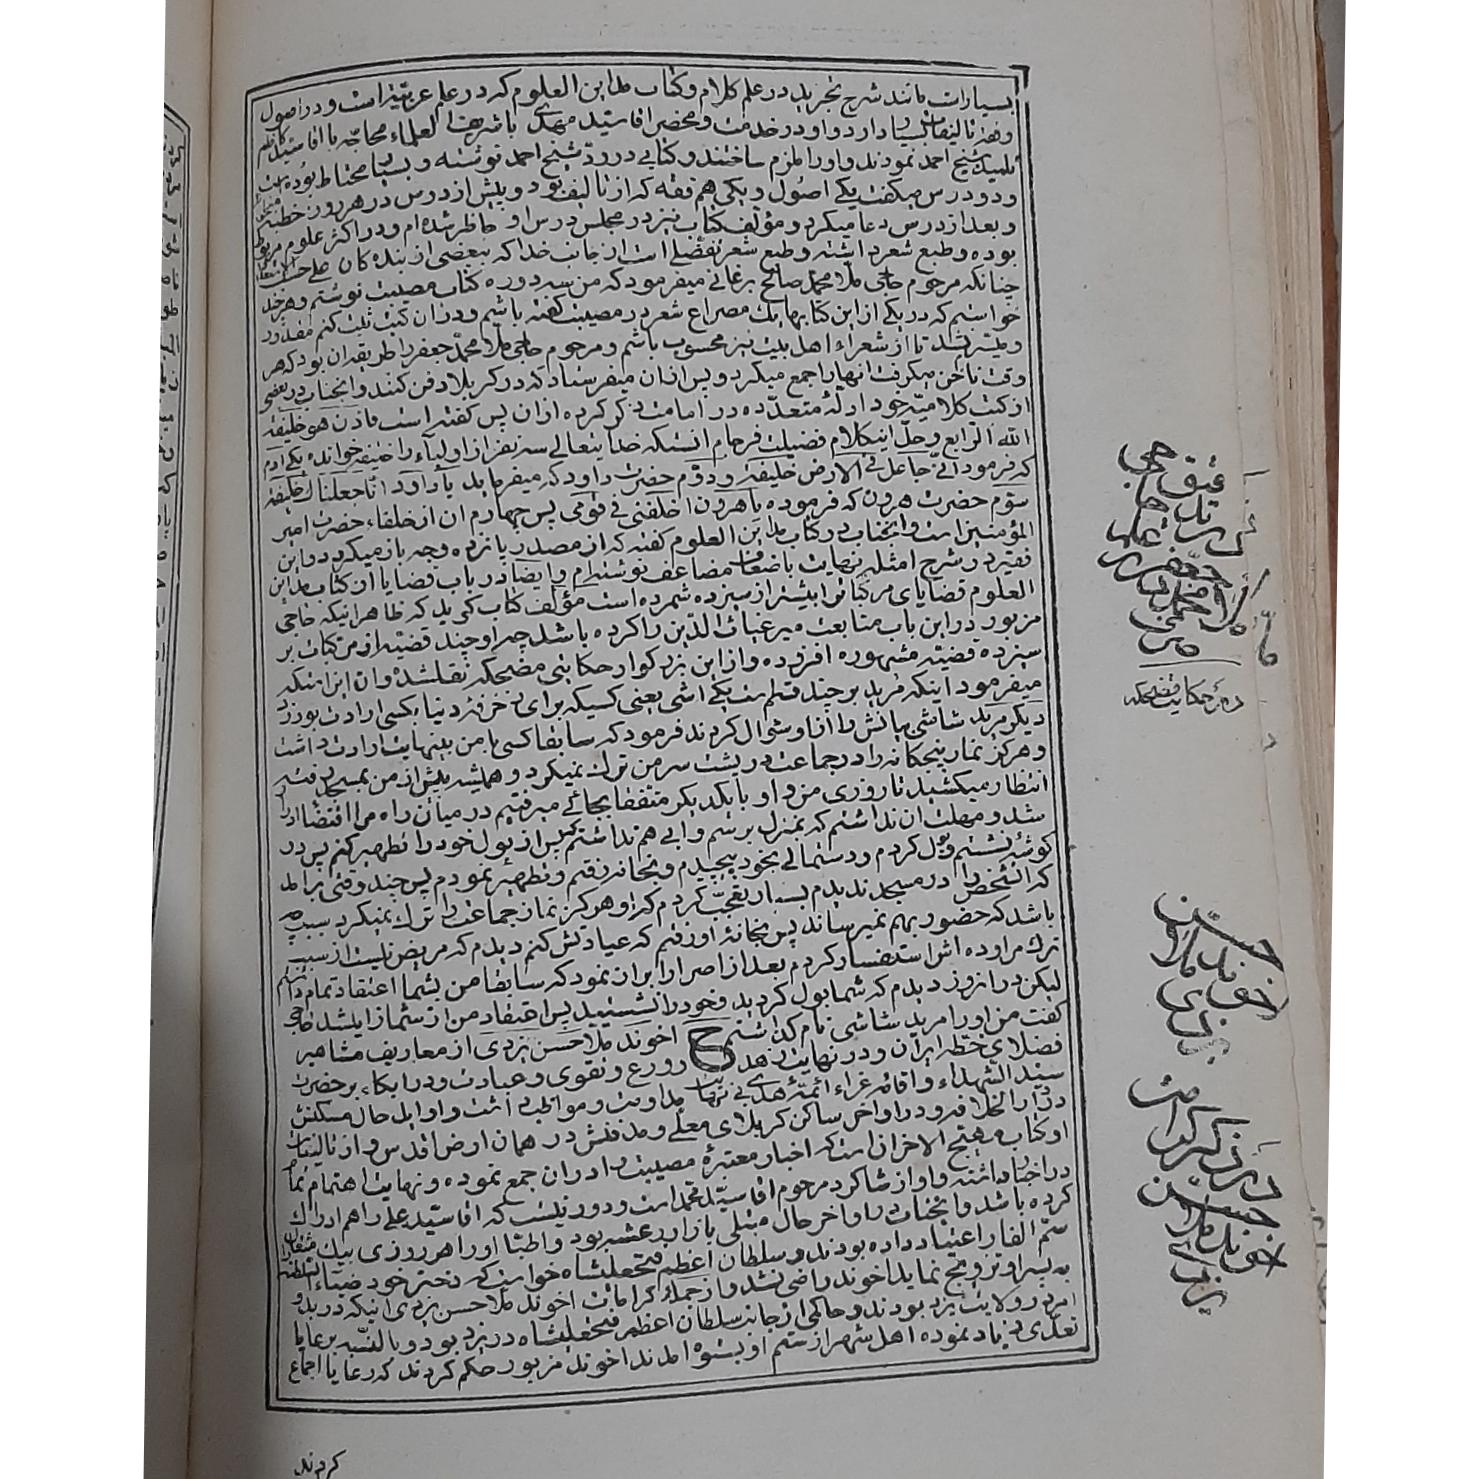 بسیار است مانند شرح تجرید در علم کلام و کتاب مداین العلوم که در علم عربیّة است و در اصول
و فقه تالیفات بسیار دارد و او در خدمت و محضر آقا سید مهدی با شریف العلماء محاجّه با آقا سید کاظم
تلمیذ شیخ احمد نمودند و او را ملزم ساختند و کتابی در ردّ شیخ احمد نوشته و بسیار محتاط بوده است
و دو درس میگفت یکی اصول و یکی هم فقه که از تالیف بود و پیش از درس در هر روز خطبه
و بعد از درس دعا میکرد و مؤلف کتاب نیز در مجلس درس او حاظر شده ام و در اکثر علوم مربوط
بوده و طبع شعر داشته و طبع شعر تفضلی است از جانب خدا که ببعضی از بنده کان علی حسب
چنانکه مرحوم حاجی ملا محمد صالح برغانی میفرمود که من سه دوره کتاب مصیبت نوشتم و هر چند
خواستم که در یکی از این کتابها یک مصراع شعر در مصیبت گفته باشم و در ان کتب ثبت کنم مقدور
و میسّر نشد تا از شعراء اهل بیت نیز محسوب باشم و مرحوم حاجی ملا محمد جعفر را طریقه ان بود که هر
وقت ناخن میگرفت انها را جمع میکرد و پس از ان میفرستاد که در کربلا دفن کنند و انجناب در بعضی
از کتب کلامیّه خود ادلهٔ متعدّده در امامت ذکر کرده از ان پس گفته است فاذن هو خلیفة
الله الرّابع و حلّ اینکلام فضیلت فرجام انستکه خدایتعالی سه نفر از اولیاء را خلیفه خوانده یکی ادم
که فرمود انّی جاعل فی الارض خلیفه و دوّم حضرت داود که میفرماید یا داود انّا جعلناک خلیفة
سوّم حضرت هرون که فرموده یا هرون اخلفنی فی قومی پس چهارم ان از خلفاء حضرت امیر
المؤمنین است و انجناب در کتاب مداین العلوم گفته که از مصدر یازده وجه باز میگردد و این
فقیر در شرح امثله بنهایت باضعاف مضاعف نوشته ام و ایضا در باب قضایا از کتاب مداین
العلوم قضایای مرکبّا ترا بیشتر از سیزده شمرده است مؤلف کتاب گوید که ظاهر اینکه حاجی
مزبور در این باب متابعت میر غیاث الدّین را کرده باشد چه او چند قضیّه از مرکبات بر
سیزده قضیّه مشهوره افزوده و از این بزرکوار حکایتی مضحکه نقلشده و ان این اینکه
میفرمود اینکه مرید بر چند قسم است یکی اشی یعنی کسیکه برای زخرفهٔ دنیا بکسی ارادت بورزد
دیکر مرید شاشی پاکش را از او سئوال کردند فرمود که سابقا کسی با من بینهایت ارادت داشت
و هرکز نماز پنجکانه را در جماعت در پشت سر من ترک نمیکرد و همیشه پیش از من بمسجد رفته
انتظار میکشید تا روزی من و او با یکدیکر متفقا بجائی میرفتیم در میان راه مرا اقتضا ادرار
شد و مهلت ان نداشتم که بمنزل برسم و ابی هم نداشتم که پس از بول خود را تطهیر کنم پس در
کوشه نشستم و بول کردم و دستمالی بخود پیچیدم و بخانه رفتم و تطهیر نمودم پس چند وقتی برامد
که انشخص را در مسجد ندیدم بسیار تعجّب کردم که او هرکز نماز جماعت را ترک نمیکرد سبب چه
باشد که حضور بهم نمیرساند پس بخانهٔ او رفتم که عیادتش کنم دیدم که مریض نیست از سبب
ترک مراوده اش استفسار کردم بعد از اصرار ابراز نمود که سابقا من بشما اعتقاد تمام داشتم
لیکن در انروز دیدم که شما بول کردید و خود را نشستید پس اعتقاد من از شما زایلشد حاجی
گفت من او را مرید شاشی نام گذاشتم ح اخوند ملا حسن یزدی از معاریف مشاهیر
فضلای خطه ایران و در نهایت زهد و ورع و تقوی و عبادت و در ابکاء بر حضرت
سیّد الشهداء و اقامهٔ عزاء ائمّهٔ هدی بی نهایت مداومت و مواظب داشت و اوایل حال مسکنش
در دار الخلافه و در اواخر ساکن کربلای معلّی و مدفنش در همان ارض اقدس و از تالیفات
او کتاب مهیّج الاحزان است که اخبار معتبرهٔ مصیبت را در ان جمع نموده و نهایت اهتمام تمام
در اخبار داشته و او از شاکرد مرحوم آقا سیّد محمد است و دور نیست که آقا سید علی را هم ادراک
کرده باشد و انجناب در اواخر حال مبتلی بازار رعشه بود و اطبّا او را هر روزی بیک مثقال
سمّ الفار اعتیاد داده بودند و سلطان اعظم فتحعلیشاه خواست که دختر خود ضیاء السلطنه را
به پسر او تزویج نماید اخوند راضی نشد و از جمله کرامات اخوند ملا حسن یزدی اینکه در بدو
امر در ولایت یزد بودند و حاکمی از جانب سلطان اعظم فتحعلیشاه در یزد بود و بالنّسبه برعایا
تعدّی زیاد نموده اهل شهر از ستم او بستوه امدند اخوند مزبور حکم کردند که رعایا اجماع
کردند
در حکایت مضحکه
اخوند ملا حسن یزدی
در ذکر کرامت اخوند ملا حسن یزدی